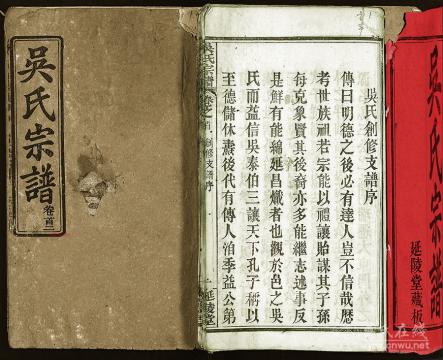 吳氏宗譜
延陵堂藏板
吳氏創修支譜序
傳曰明德之後必有達人豈不信哉歷
考世族祖若宗能以禮讓貽謀其子孫
每克象賢其後裔亦多能繼志述事反
是鮮有能綿延昌熾者也觀於邑之吳
氏而益信吳泰伯三讓天下孔子稱以
至德儲休燾後代有傳人洎季益公第
吳氏宗譜 卷之首 創修支譜序 一 延陵堂
吳氏宗譜
卷首